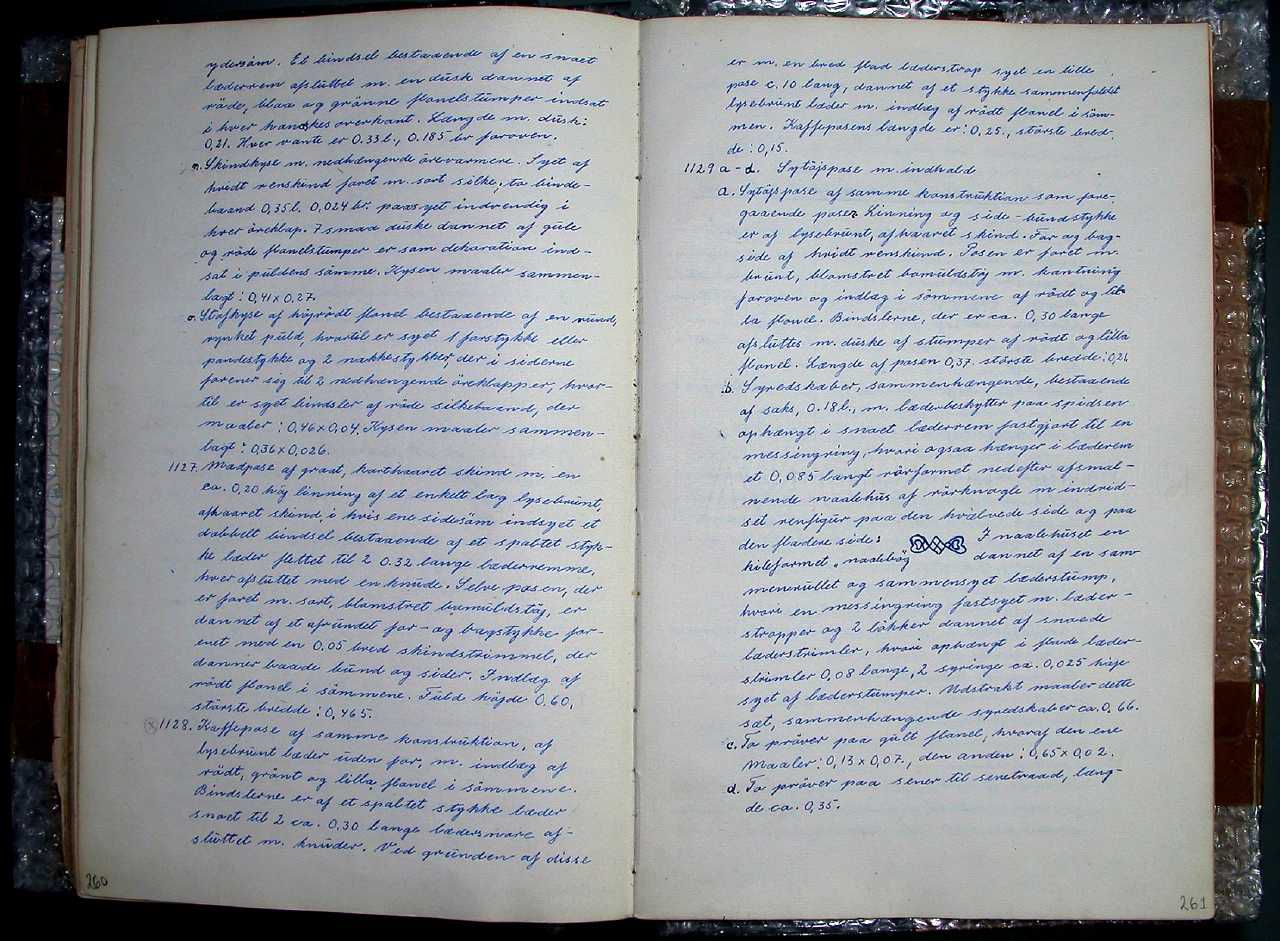 ydersöm. Et bindsel bestaaende af en snoet
læderrem afsluttet m. en dusk dannet af
röde, blaa og grönne flonelstumper indsat
i hver hvanskes overkant. Længde m. dusk:
0,21. Hver vante er 0.33 l., 0.185 br foroven.
n. Skindkyse m. nedhængende örevarmere. Syet af
hvidt renskind foret m. sort silke; to binde-
baand 0,35 l. 0,024 br. paasyet indvendig i
hver öreklap. 7 smaa duske dannet af gule
og röde flonelstumper er som dekoration ind-
sat i puldens sömme. Kysen maaler sammen-
lagt: 0,41 x 0,27.
o. Stofkyse af höjrödt flonel bestaaende af en rund,
rynket puld, hvortil er syet 1 forstykke eller
pandestykke og 2 nakkestykker, der i siderne
forener sig til 2 nedhængende öreklapper, hvor-
til er syet bindsler af röde silkebaand, der
maaler: 0,46 x 0,04. Kysen maaler sammen-
lagt: 0,36 x 0,026.
1127. Madpose af graat, korthaaret skind m. en
ca. 0,20 höj linning af et enkelt lag lysebrunt,
afhaaret skind, i hvis ene sidesöm indsyet et
dobbelt bindsel bestaaende af et spaltet styk-
ke læder flettet til 2 0.32 lange læderremme,
hver afsluttet med en knude. Selve posen, der
er foret m. sort, blomstret bomuldstöj, er
dannet af et afrundet for- og bagstykke for-
enet med en 0.05 bred skindstrimmel, der
danner baade bund og sider. Indlæg af
rödt flonel i sömmene. Fuld höjde 0.60,
störste bredde: 0,465.
x 1128. Kaffepose af samme konstruktion, af
lysebrunt læder uden for, m. indlæg af
rödt, grönt og lilla flonel i sömmene.
Bindslerne er af et spaltet stykke læder
snoet til 2 ca. 0,30 lange lædersnore af-
sluttet m. knuder. Ved grunden af disse
260
er m. en bred flad læderstrop syet en lille
pose c. 10 lang, dannet af et stykke sammenfoldet
lysebrunt læder m. indlæg af rödt flonel i söm-
men. Kaffeposens længde er: 0,25., störste bred-
de: 0,15.
1129 a-d. Sytöjspose m. indhold
a. Sytöjspose af samme konstruktion som fore-
gaaende poser. Linning og side-bundstykke
er af lysebrunt, afhaaret skind. For og bag-
side af hvidt renskind. Posen er foret m.
brunt, blomstret bomuldstöj m. kantning
foroven og indlæg i sömmene af rödt og lil-
la flonel. Bindslerne, der er ca. 0,30 lange
afsluttes m. duske af stumper af rödt og lilla
flonel. Længde af posen 0,37. störste bredde: 0,21.
b. Syredskaber, sammenhængende, bestaaende
af saks, 0.18 l., m. læderbeskytter paa spidsen
ophængt i snoet læderrem fastgjort til en
messingring, hvori ogsaa hænger i læderrem
et 0,085 langt rörformet nedefter afsmal-
nende naalehus af rörknogle m indrid-
set renfigur paa den hvælvede side og paa
den fladere side: I naalehuset en
kileformet "naalebög" dannet af en sam-
menrullet og sammensyet læderstump,
hvori en messingring fastsyet m. læder-
stropper og 2 lökker dannet af snoede
læderstrimler, hvori ophængt i flade læder-
strimler 0,08 lange, 2 syringe ca. 0,025 höje
syet af læderstumper. Udstrakt maaler dette
sæt, sammenhængende syredskaber ca. 0,66.
c. To pröver paa gult flonel, hvoraf den ene
maaler: 0,13 x 0,07., den anden: 0,65 x 0,02.
d. To pröver paa sener til senetraad, læng-
de ca. 0,35.
261